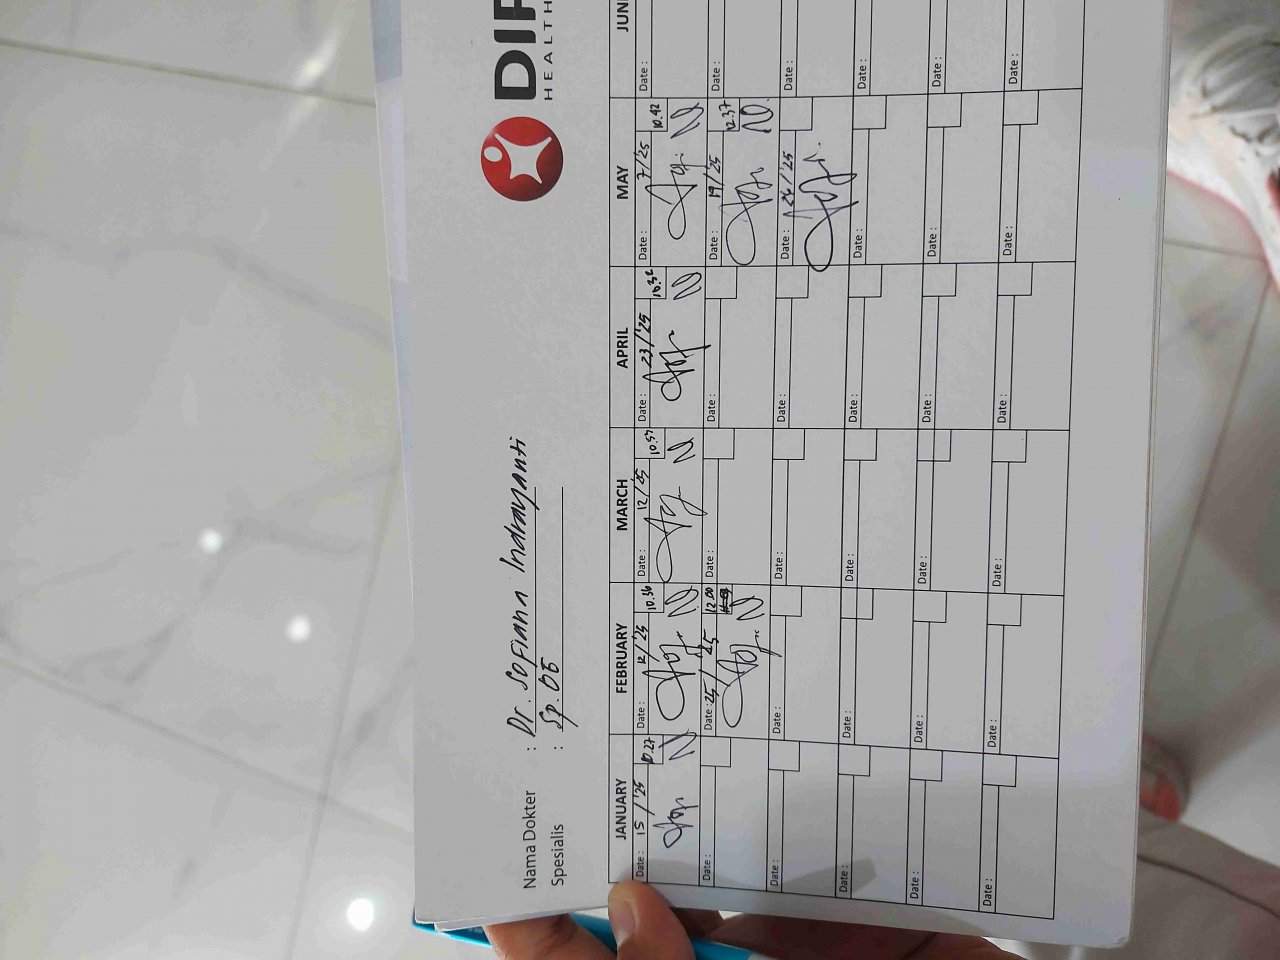 DIP
HEALTH
Nama Dokter : Dr. Sofiana Indrayanti
Spesialis : Sp. OG
JANUARY FEBRUARY MARCH APRIL MAY JUN
Date : 15/'25 10.27 Date : 12/'25 10.36 Date : 12/'25 10.57 Date : 23/'25 Date : 7/'25 10.42 Date :
Date : Date : 25/25 12.00 Date : Date : Date : 19/'25 12.37 Date :
Date : Date : Date : Date : Date : 24/'25 Date :
Date : Date : Date : Date : Date : Date :
Date : Date : Date : Date : Date : Date :
Date : Date : Date : Date : Date : Date :